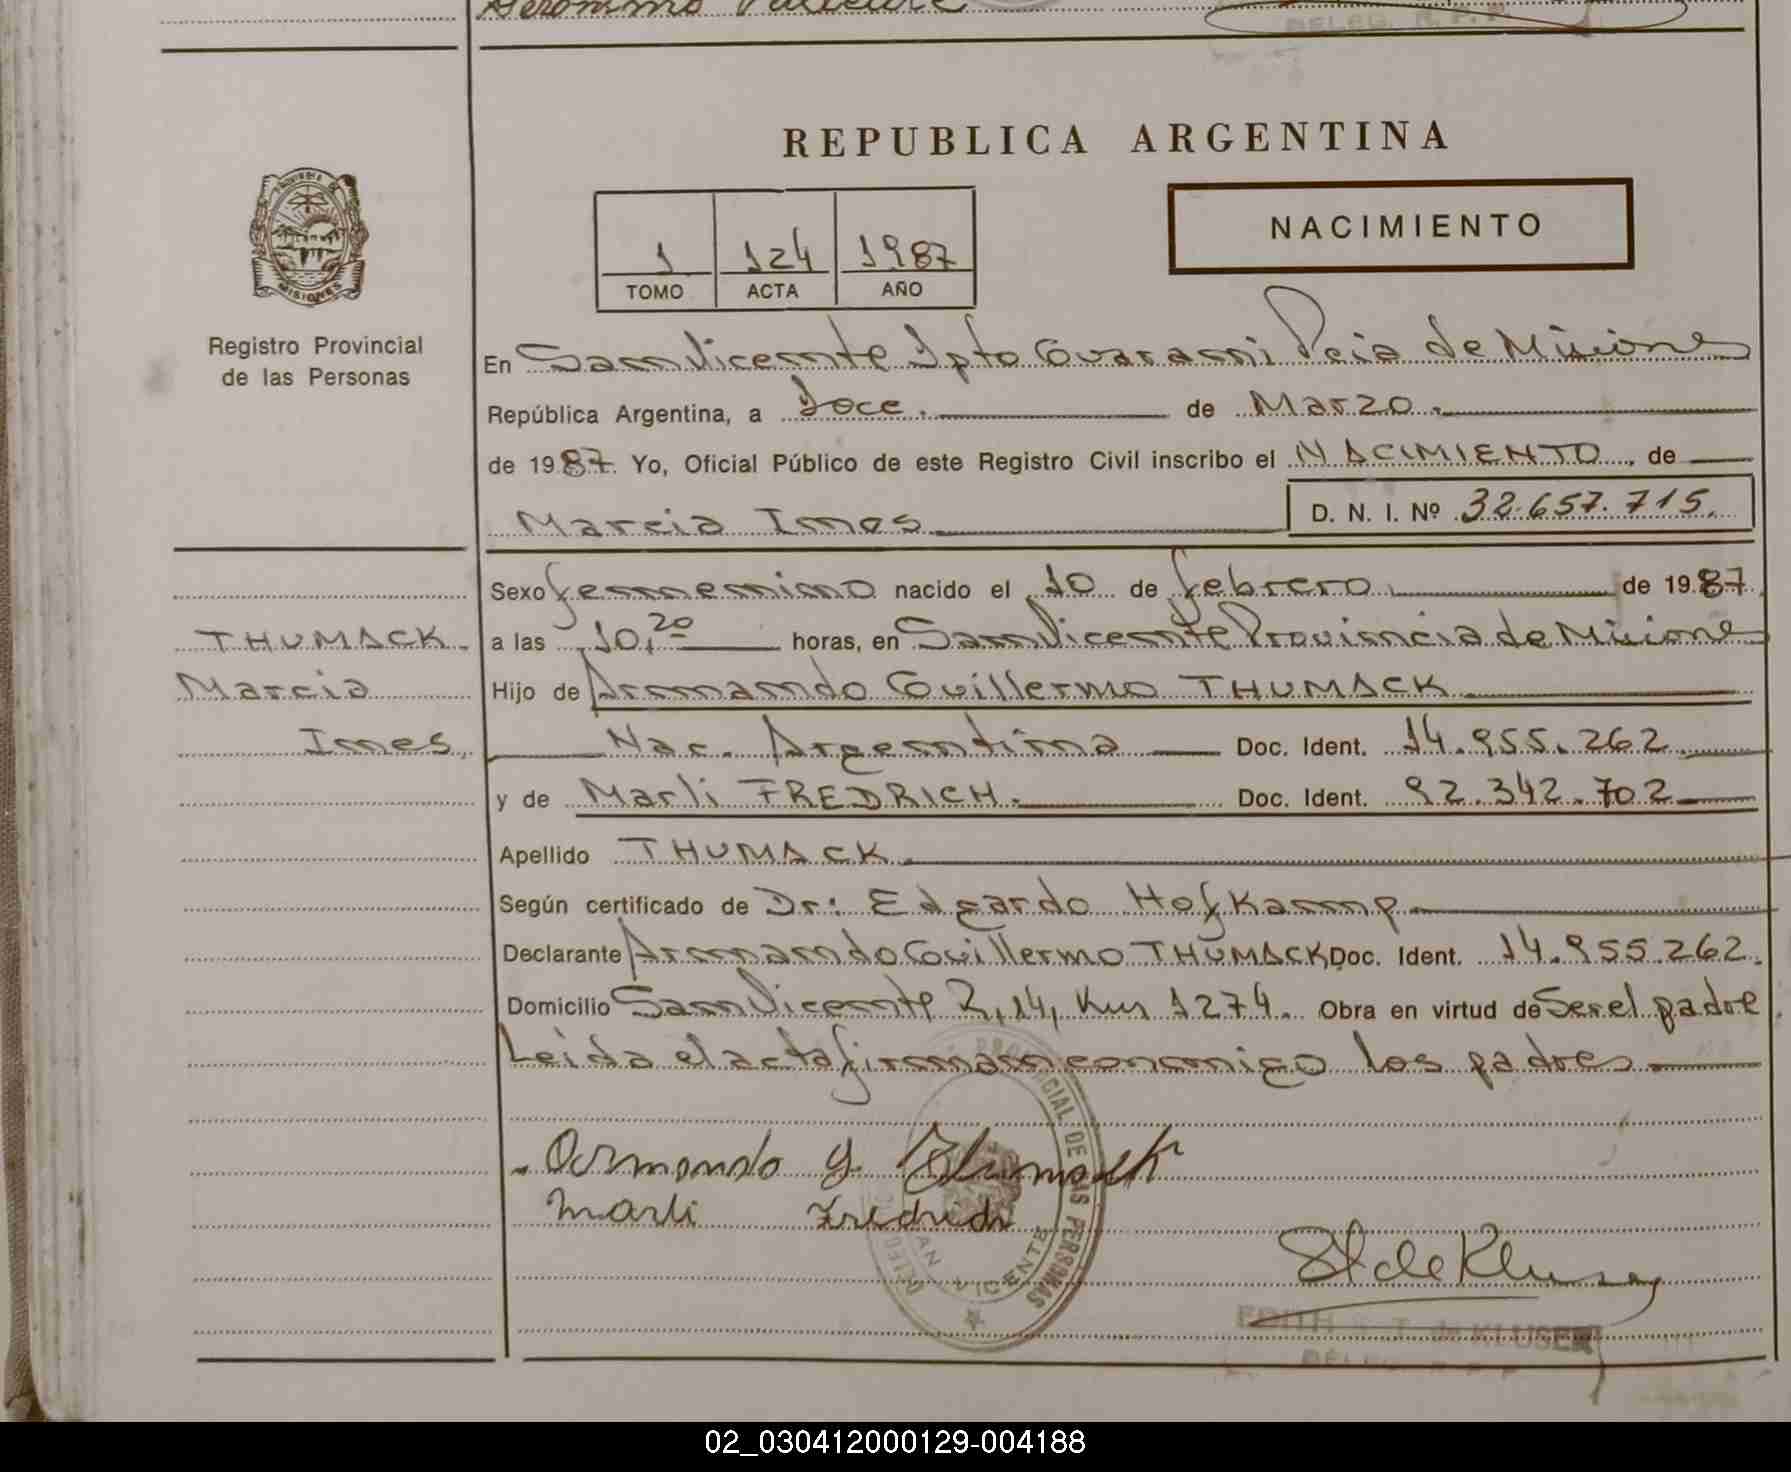 Registro Provincial
de las Personas
MISIONES
THUMACK.
Marcia
Ines.
REPUBLICA ARGENTINA
1 124 1987
TOMO ACTA AÑO
NACIMIENTO
En San Vicente Dpto Guarani Pcia de Misiones
República Argentina, a Doce. de Marzo.
de 1987. Yo, Oficial Público de este Registro Civil inscribo el NACIMIENTO, de
Marcia Ines D. N. I. Nº 32.657.715.
Sexo femenino nacido el 10 de febrero de 1987
a las 10,20 horas, en San Vicente Provincia de Misiones
Hijo de Armando Guillermo THUMACK
Nac. Argentina Doc. Ident. 14.955.262
y de Marli FREDRICH. Doc. Ident. 92.342.702
Apellido THUMACK
Según certificado de Dr: Edgardo Hofkamp
Declarante Armando Guillermo THUMACK Doc. Ident. 14.955.262.
Domicilio San Vicente R, 14, Km 1274. Obra en virtud de Ser el padre
Leida el acta firman conmigo los padres
Armando G. Thumack
Marli Fredrich
PROVINCIAL DE LAS PERSONAS
SAN VICENTE
EDITH T. de KLUSER
DELEG. R. P. P.
02_030412000129-004188